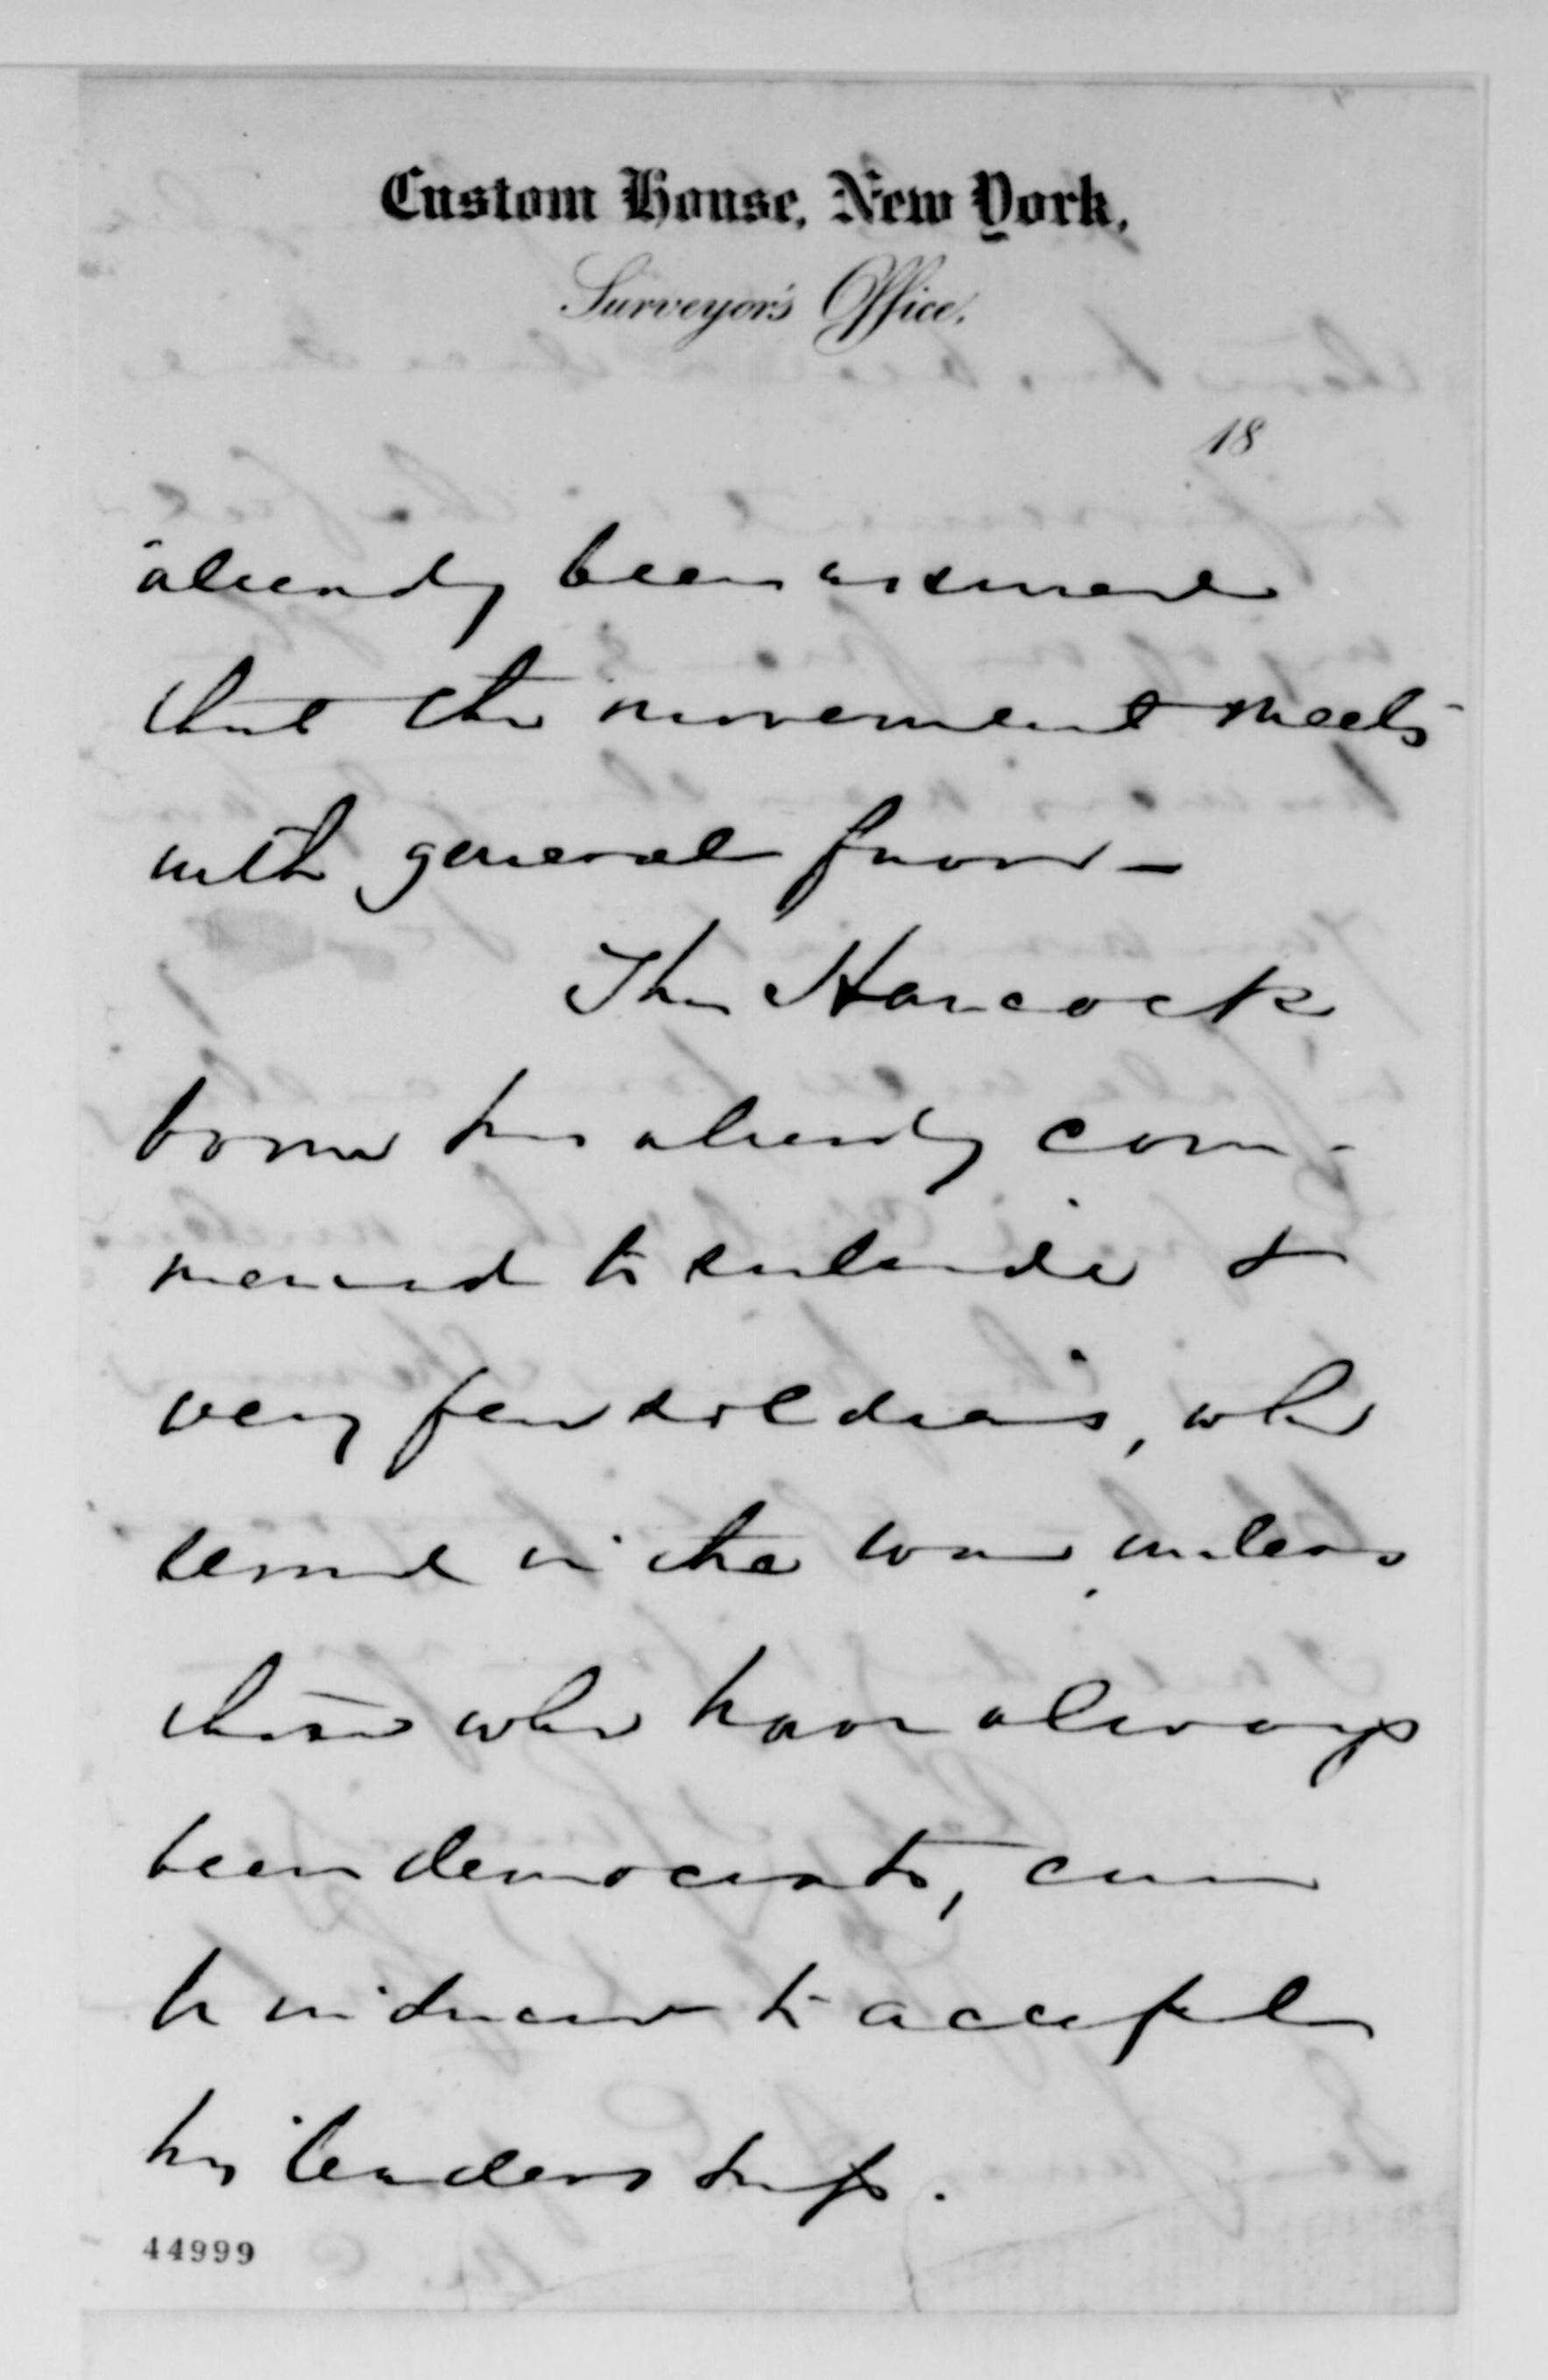 Custom House, New York,
Surveyor's Office.
18
already been assured
that the movement meets
with general favor –
The Hancock
boom has already com-
menced to subside &
very few soldiers, who
served in the war, unless
those who have always
been democrats, can
be induced to accept
his leadership.
44999